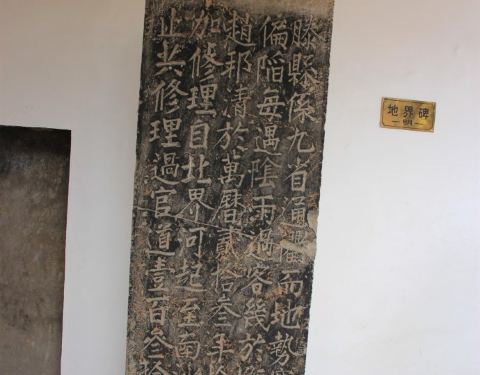 滕縣係九省通衢而地勢
偏陷每遇陰雨過客幾於
趙邦清於萬曆貳拾叁年
加修理自北界可起至南
止共修理過官道壹百叁拾
地界碑
明